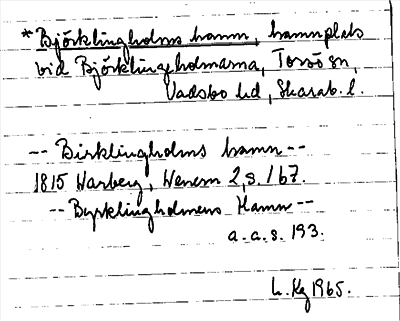 *Björklingholms hamn, hamnplats
vid Björklingeholmarna, Torsö sn,
Vadsbo hd, Skarab. l.
-- Birklingholms hamn --
1815 Warberg, Wenern 2, s. 167.
-- Byrklingholmens Hamn --
a.a.s. 193.
1965.